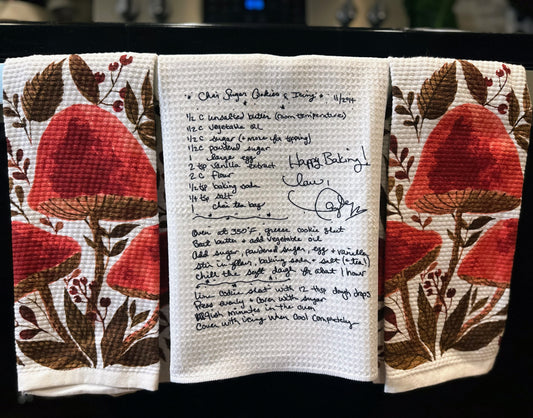 * Chai Sugar Cookies & Icing * 11/2
½ C unsalted butter (room temperature)
½ C vegetable oil
½ C sugar (+ more for topping)
½ C powdered sugar
1 large egg
2 tsp vanilla extract
2 C flour
½ tsp baking soda
¼ tsp salt
1 chai tea bag
Happy Baking!
Love,
Oven at 350°F, grease cookie sheet
Beat butter + add vegetable oil
Add sugar, powdered sugar, egg + vanilla
Stir in flour, baking soda + salt (+ tea!)
Chill the soft dough for about 1 hour
Line cookie sheet with 12 tbsp dough drops
Press evenly + cover with sugar
ish minutes in the oven
Cover with icing when cool completely